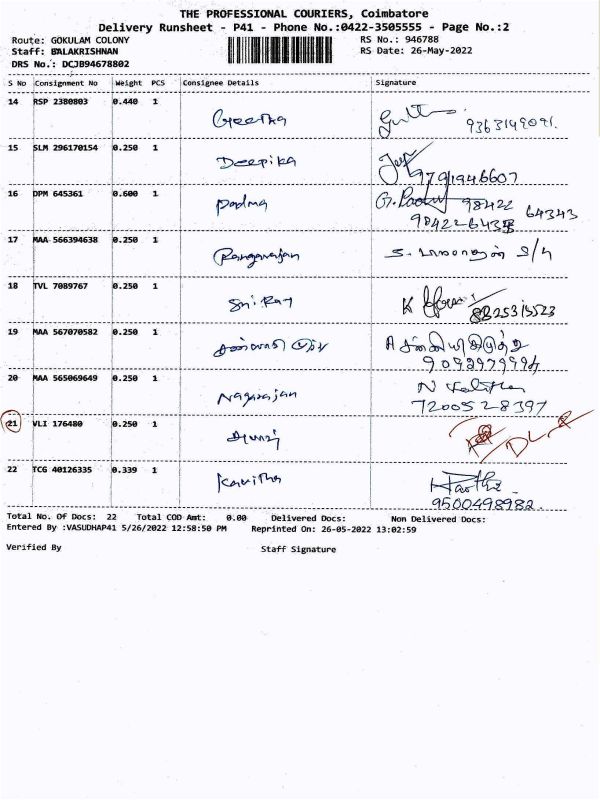 THE PROFESSIONAL COURIERS, Coimbatore
Delivery Runsheet - P41 - Phone No.:0422-3505555 - Page No.:2
Route: GOKULAM COLONY RS No.: 946788
Staff: BALAKRISHNAN RS Date: 26-May-2022
DRS No.: DCJB94678802
S No Consignment No Weight PCS Consignee Details Signature
14 RSP 2380803 0.440 1
Geetha 9363149091.
15 SLM 296170154 0.250 1
Deepika
9791946607
16 DPM 645361 0.600 1
Padma G. Padma 98422 64343
17 MAA 566394638 0.250 1
Ranganajan
18 TVL 7089767 0.250 1
K
19 MAA 567070582 0.250 1
A
20 MAA 565069649 0.250 1
Nagarajan N Lalitha
7200528397
21 VLI 176480 0.250 1
DL
22 TCG 40126335 0.339 1
Kavitha
9500498982.
Total No. Of Docs: 22 Total COD Amt: 0.00 Delivered Docs: Non Delivered Docs:
Entered By :VASUDHAP41 5/26/2022 12:58:50 PM Reprinted On: 26-05-2022 13:02:59
Verified By Staff Signature